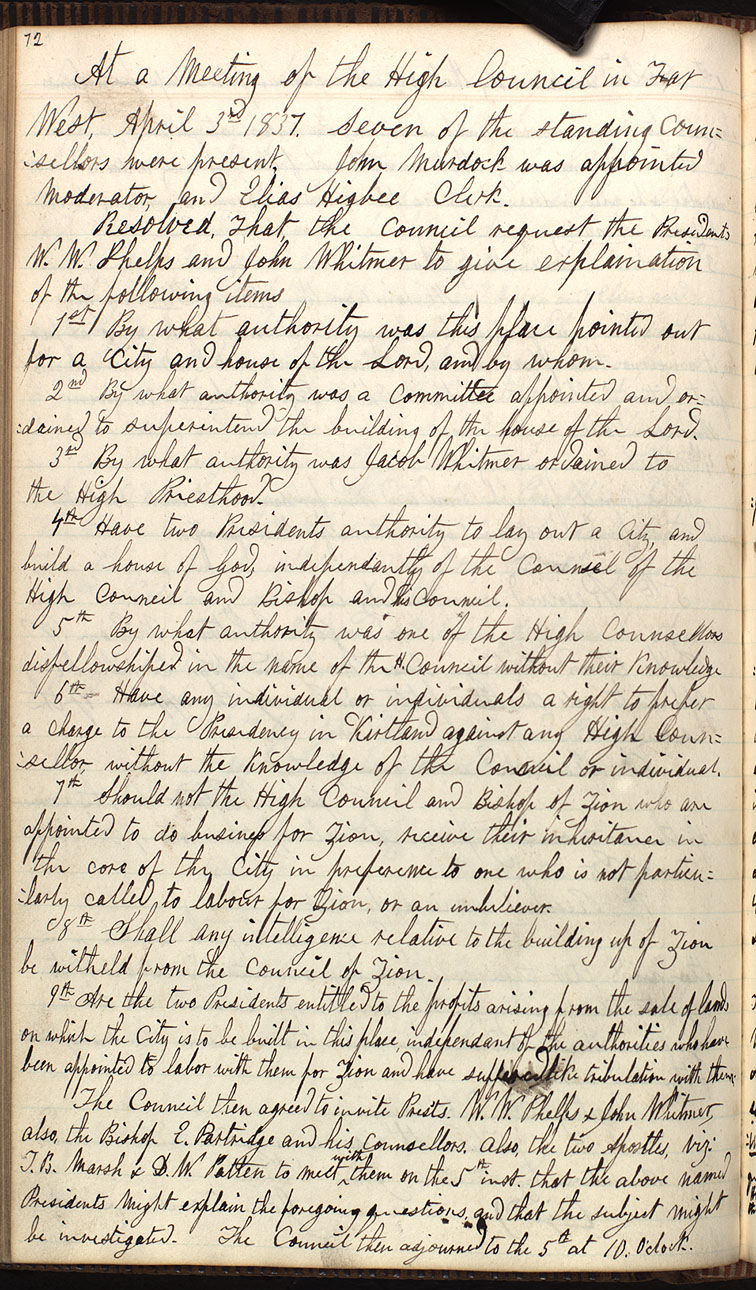 72
At a Meeting of the High Council in Far
West, April 3rd 1837. Seven of the standing Coun=
:sellors were present, John Murdock was appointed
Moderator, and Elias Higbee Clerk.
Resolved, That the Council request the Presidents
W. W. Phelps and John Whitmer to give explaination
of the following items
1st By what authority was this place pointed out
for a City and house of the Lord, and by whom.
2nd By what authority was a Committee appointed and or=
:dained to superintend the building of the house of the Lord.
3rd By what authority was Jacob Whitmer ordained to
the High Priesthood.
4th Have two Presidents authority to lay out a City, and
build a house of God, independantly of the Counsel of the
High Council and Bishop and his Council.
5th By what authority was one of the High Counsellors
disfellowshiped in the name of the H. Council without their Knowledge
6th Have any individual or individuals a right to prefer
a charge to the Presidency in Kirtland against any High Coun=
:sellor, without the Knowledge of the Council or individual.
7th Should not the High Council and Bishop of Zion who are
appointed to do business for Zion, receive their inheritance in
the core of the City in preference to one who is not particu=
:larly called to labour for Zion, or an unbeliever.
8th Shall any intelligence relative to the building up of Zion
be witheld from the Council of Zion.
9th Are the two Presidents entitled to the profits arising from the sale of lands
on which the City is to be built in this place, independant of the authorities who have
been appointed to labor with them for Zion and have suffered like tribulation with them.
The Council then agreed to invite Prests. W. W. Phelps & John Whitmer,
also, the Bishop E. Partridge and his counsellors. also, the two Apostles, viz:
T. B. Marsh & D. W. Patten to meet with them on the 5th inst. that the above named
Presidents Might explain the foregoing questions, and that the subject might
be investigated. The Council then adjourned to the 5th at 10. Oclock.